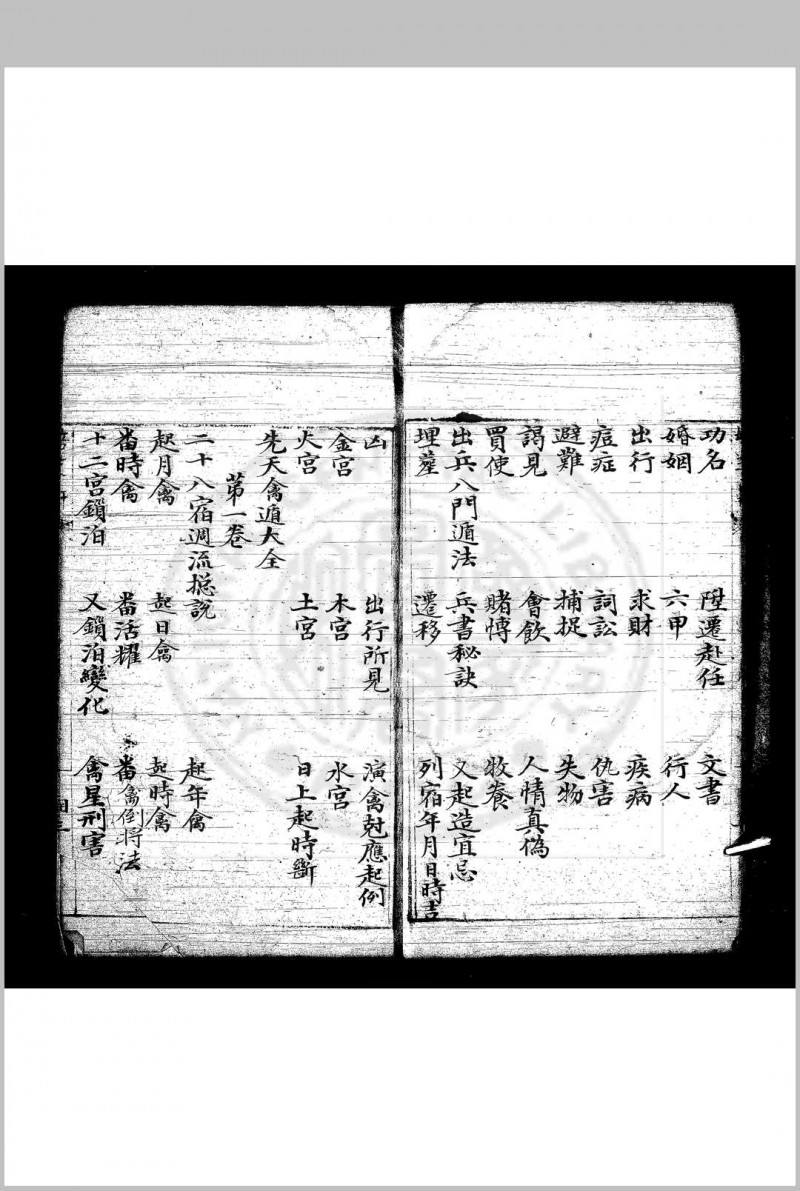 功名　陞遷赴任　文書
婚姻　六甲　行人
出行　求財　疾病
痘症　詞訟　仇害
避難　捕捉　失物
謁見　會飲　人情真偽
買使　賭愽　牧養
出兵八門遁法　兵書秘訣　又起造宜忌
埋塟　遷移　列宿年月日時吉
凶　出行所見　演禽尅應起例
金宮　木宮　水宮
火宮　土宮　日上起時斷
先天禽遁大全
第一卷
二十八宿週流捴說　起年禽
起月禽　起日禽　起時禽
畨時禽　畨活耀　畨禽倒將法
十二宮鎖泊　又鎖泊變化　禽星刑害